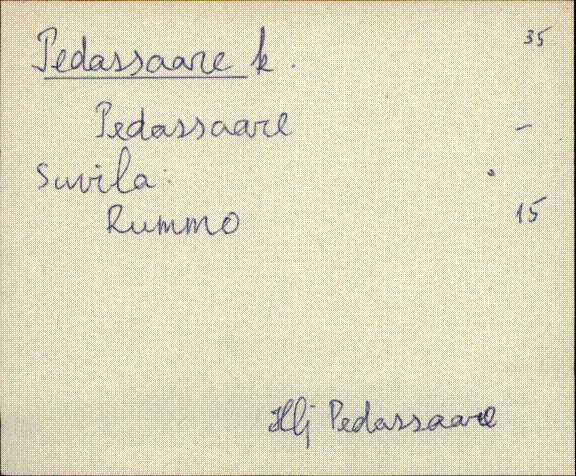 Pedassaare k. 35
Pedassaare –
Suvila:
Rummo 15
Hlj Pedassaare